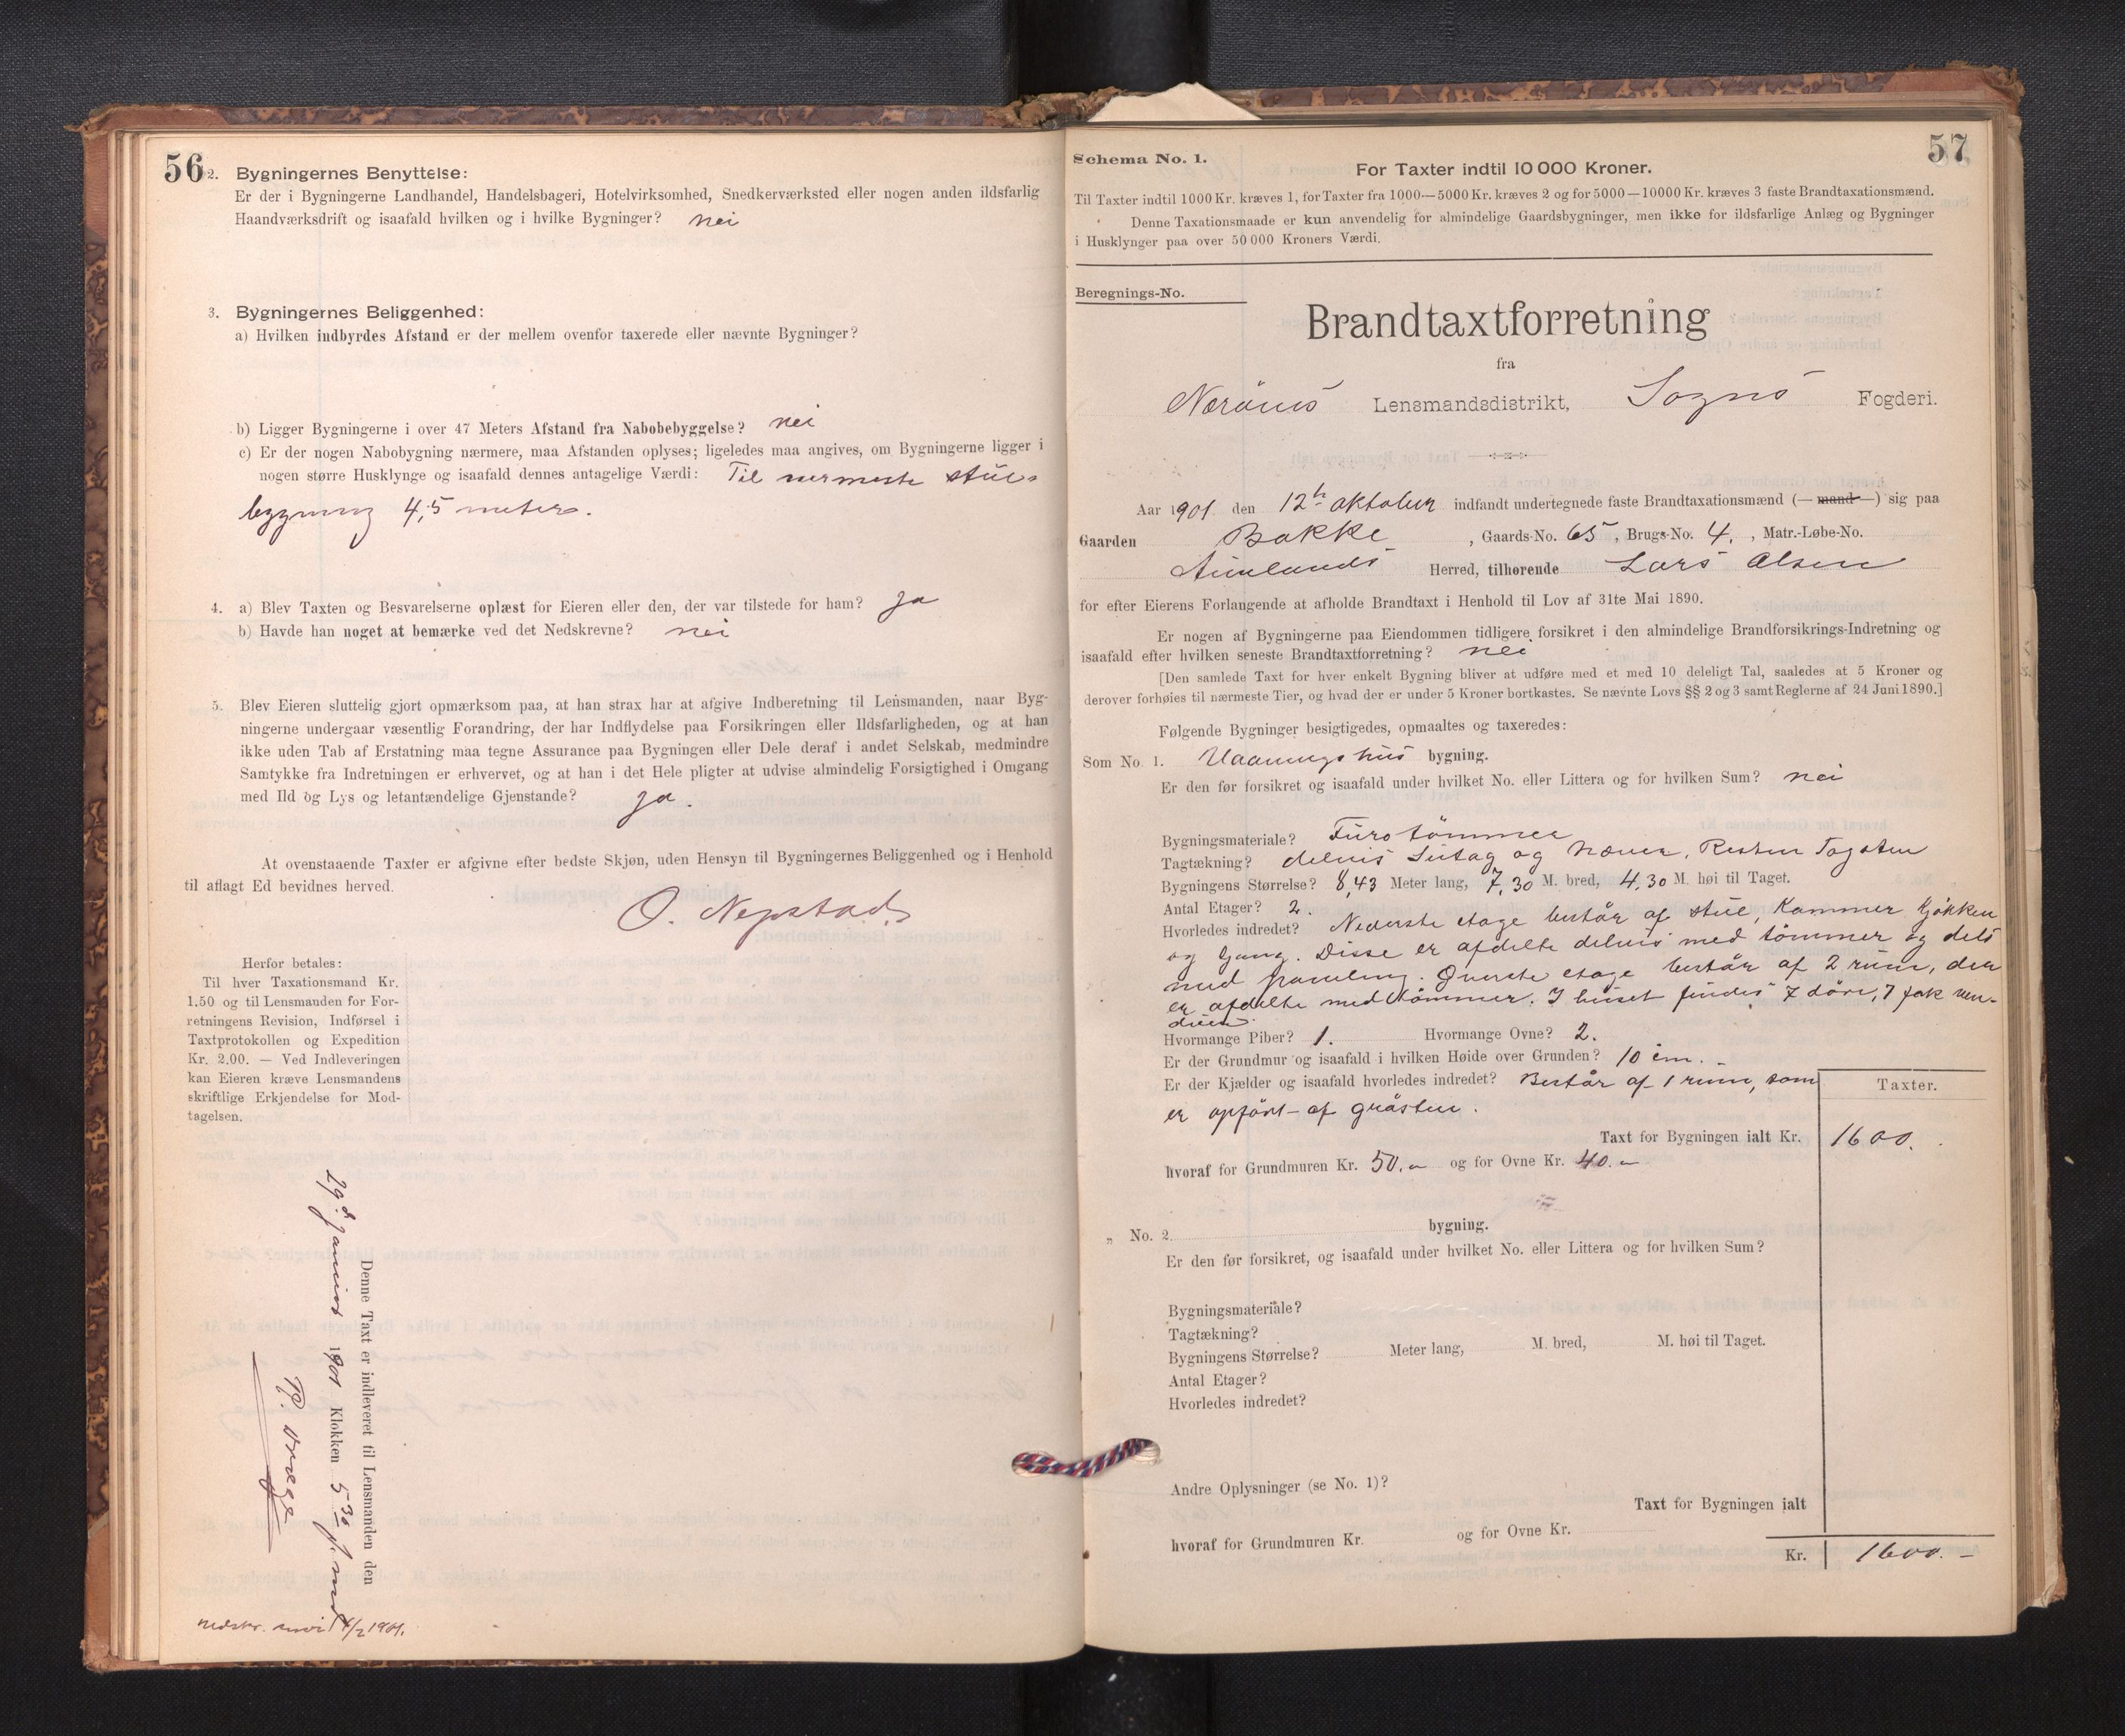 56
2. Bygningernes Benyttelse:
Er der i Bygningerne Landhandel, Handelsbageri, Hotelvirksomhed, Snedkerværksted eller nogen anden ildsfarlig
Haandværksdrift og isaafald hvilken og i hvilke Bygninger? nei
3. Bygningernes Beliggenhed:
a) Hvilken indbyrdes Afstand er der mellem ovenfor taxerede eller nævnte Bygninger?
b) Ligger Bygningerne i over 47 Meters Afstand fra Nabobebyggelse? nei
c) Er der nogen Nabobygning nærmere, maa Afstanden oplyses; ligeledes maa angives, om Bygningerne ligger i
nogen større Husklynge og isaafald dennes antagelige Værdi: Til nærmeste stue-
bygning 4,5 meter.
4. a) Blev Taxten og Besvarelserne oplæst for Eieren eller den, der var tilstede for ham? ja
b) Havde han noget at bemærke ved det Nedskrevne? nei
5. Blev Eieren sluttelig gjort opmærksom paa, at han strax har at afgive Indberetning til Lensmanden, naar Byg-
ningerne undergaar væsentlig Forandring, der har Indflydelse paa Forsikringen eller Ildsfarligheden, og at han
ikke uden Tab af Erstatning maa tegne Assurance paa Bygningen eller Dele deraf i andet Selskab, medmindre
Samtykke fra Indretningen er erhvervet, og at han i det Hele pligter at udvise almindelig Forsigtighed i Omgang
med Ild og Lys og letantændelige Gjenstande? ja.
At ovenstaaende Taxter er afgivne efter bedste Skjøn, uden Hensyn til Bygningernes Beliggenhed og i Henhold
til aflagt Ed bevidnes herved.
O. Nepstad
Herfor betales:
Til hver Taxationsmand Kr.
1.50 og til Lensmanden for For-
retningens Revision, Indførsel i
Taxtprotokollen og Expedition
Kr. 2.00. — Ved Indleveringen
kan Eieren kræve Lensmandens
skriftlige Erkjendelse for Mod-
tagelsen.
Denne Taxt er indleveret til Lensmanden den
29d Januar 1901 Klokken 5 30
1901.
57
Schema No. 1.
For Taxter indtil 10 000 Kroner.
Til Taxter indtil 1000 Kr. kræves 1, for Taxter fra 1000—5000 Kr. kræves 2 og for 5000—10000 Kr. kræves 3 faste Brandtaxationsmænd.
Denne Taxationsmaade er kun anvendelig for almindelige Gaardsbygninger, men ikke for ildsfarlige Anlæg og Bygninger
i Husklynger paa over 50 000 Kroners Værdi.
Beregnings-No.
Brandtaxtforretning
fra
Nærøens Lensmandsdistrikt, Sogns Fogderi.
Aar 1901 den 12te oktober indfandt undertegnede faste Brandtaxationsmænd (—mand—) sig paa
Gaarden Bakke, Gaards-No. 65, Brugs-No. 4., Matr.-Løbe-No.
Aurlands Herred, tilhørende Lars Olsen
for efter Eierens Forlangende at afholde Brandtaxt i Henhold til Lov af 31te Mai 1890.
Er nogen af Bygningerne paa Eiendommen tidligere forsikret i den almindelige Brandforsikrings-Indretning og
isaafald efter hvilken seneste Brandtaxtforretning? nei
[Den samlede Taxt for hver enkelt Bygning bliver at udføre med et med 10 deleligt Tal, saaledes at 5 Kroner og
derover forhøies til nærmeste Tier, og hvad der er under 5 Kroner bortkastes. Se nævnte Lovs §§ 2 og 3 samt Reglerne af 24 Juni 1890.]
Følgende Bygninger besigtigedes, opmaaltes og taxeredes:
Som No. 1. Vaaningshus bygning.
Er den før forsikret og isaafald under hvilket No. eller Littera og for hvilken Sum? nei
Bygningsmateriale? Furotømmer
Tagtækning? delvis Lutag og næver, Resten Tagsten
Bygningens Størrelse? 8,43 Meter lang, 7,30 M. bred, 4,30 M. høi til Taget.
Antal Etager? 2.
Hvorledes indredet? Nederste etage består af stue, Kammer kjøkken
og Gang. Disse er afdelte delvis med tømmer og dels
med paneling. Øverste etage består af 2 rum, der
er afdelte med tømmer. I huset findes 7 døre, 7 fak ven-
duer.
Hvormange Piber? 1. Hvormange Ovne? 2.
Er der Grundmur og isaafald i hvilken Høide over Grunden? 10 cm. -
Er der Kjælder og isaafald hvorledes indredet? Består af 1 rum, som
er opført af gråsten.
Taxter.
Taxt for Bygningen ialt Kr. 1600.
hvoraf for Grundmuren Kr. 50.- og for Ovne Kr. 40.-
„ No. 2. bygning.
Er den før forsikret, og isaafald under hvilket No. eller Littera og for hvilken Sum?
Bygningsmateriale?
Tagtækning?
Bygningens Størrelse? Meter lang, M. bred, M. høi til Taget.
Antal Etager?
Hvorledes indredet?
Andre Oplysninger (se No. 1)?
Taxt for Bygningen ialt
hvoraf for Grundmuren Kr. og for Ovne Kr.
Kr. 1600.-